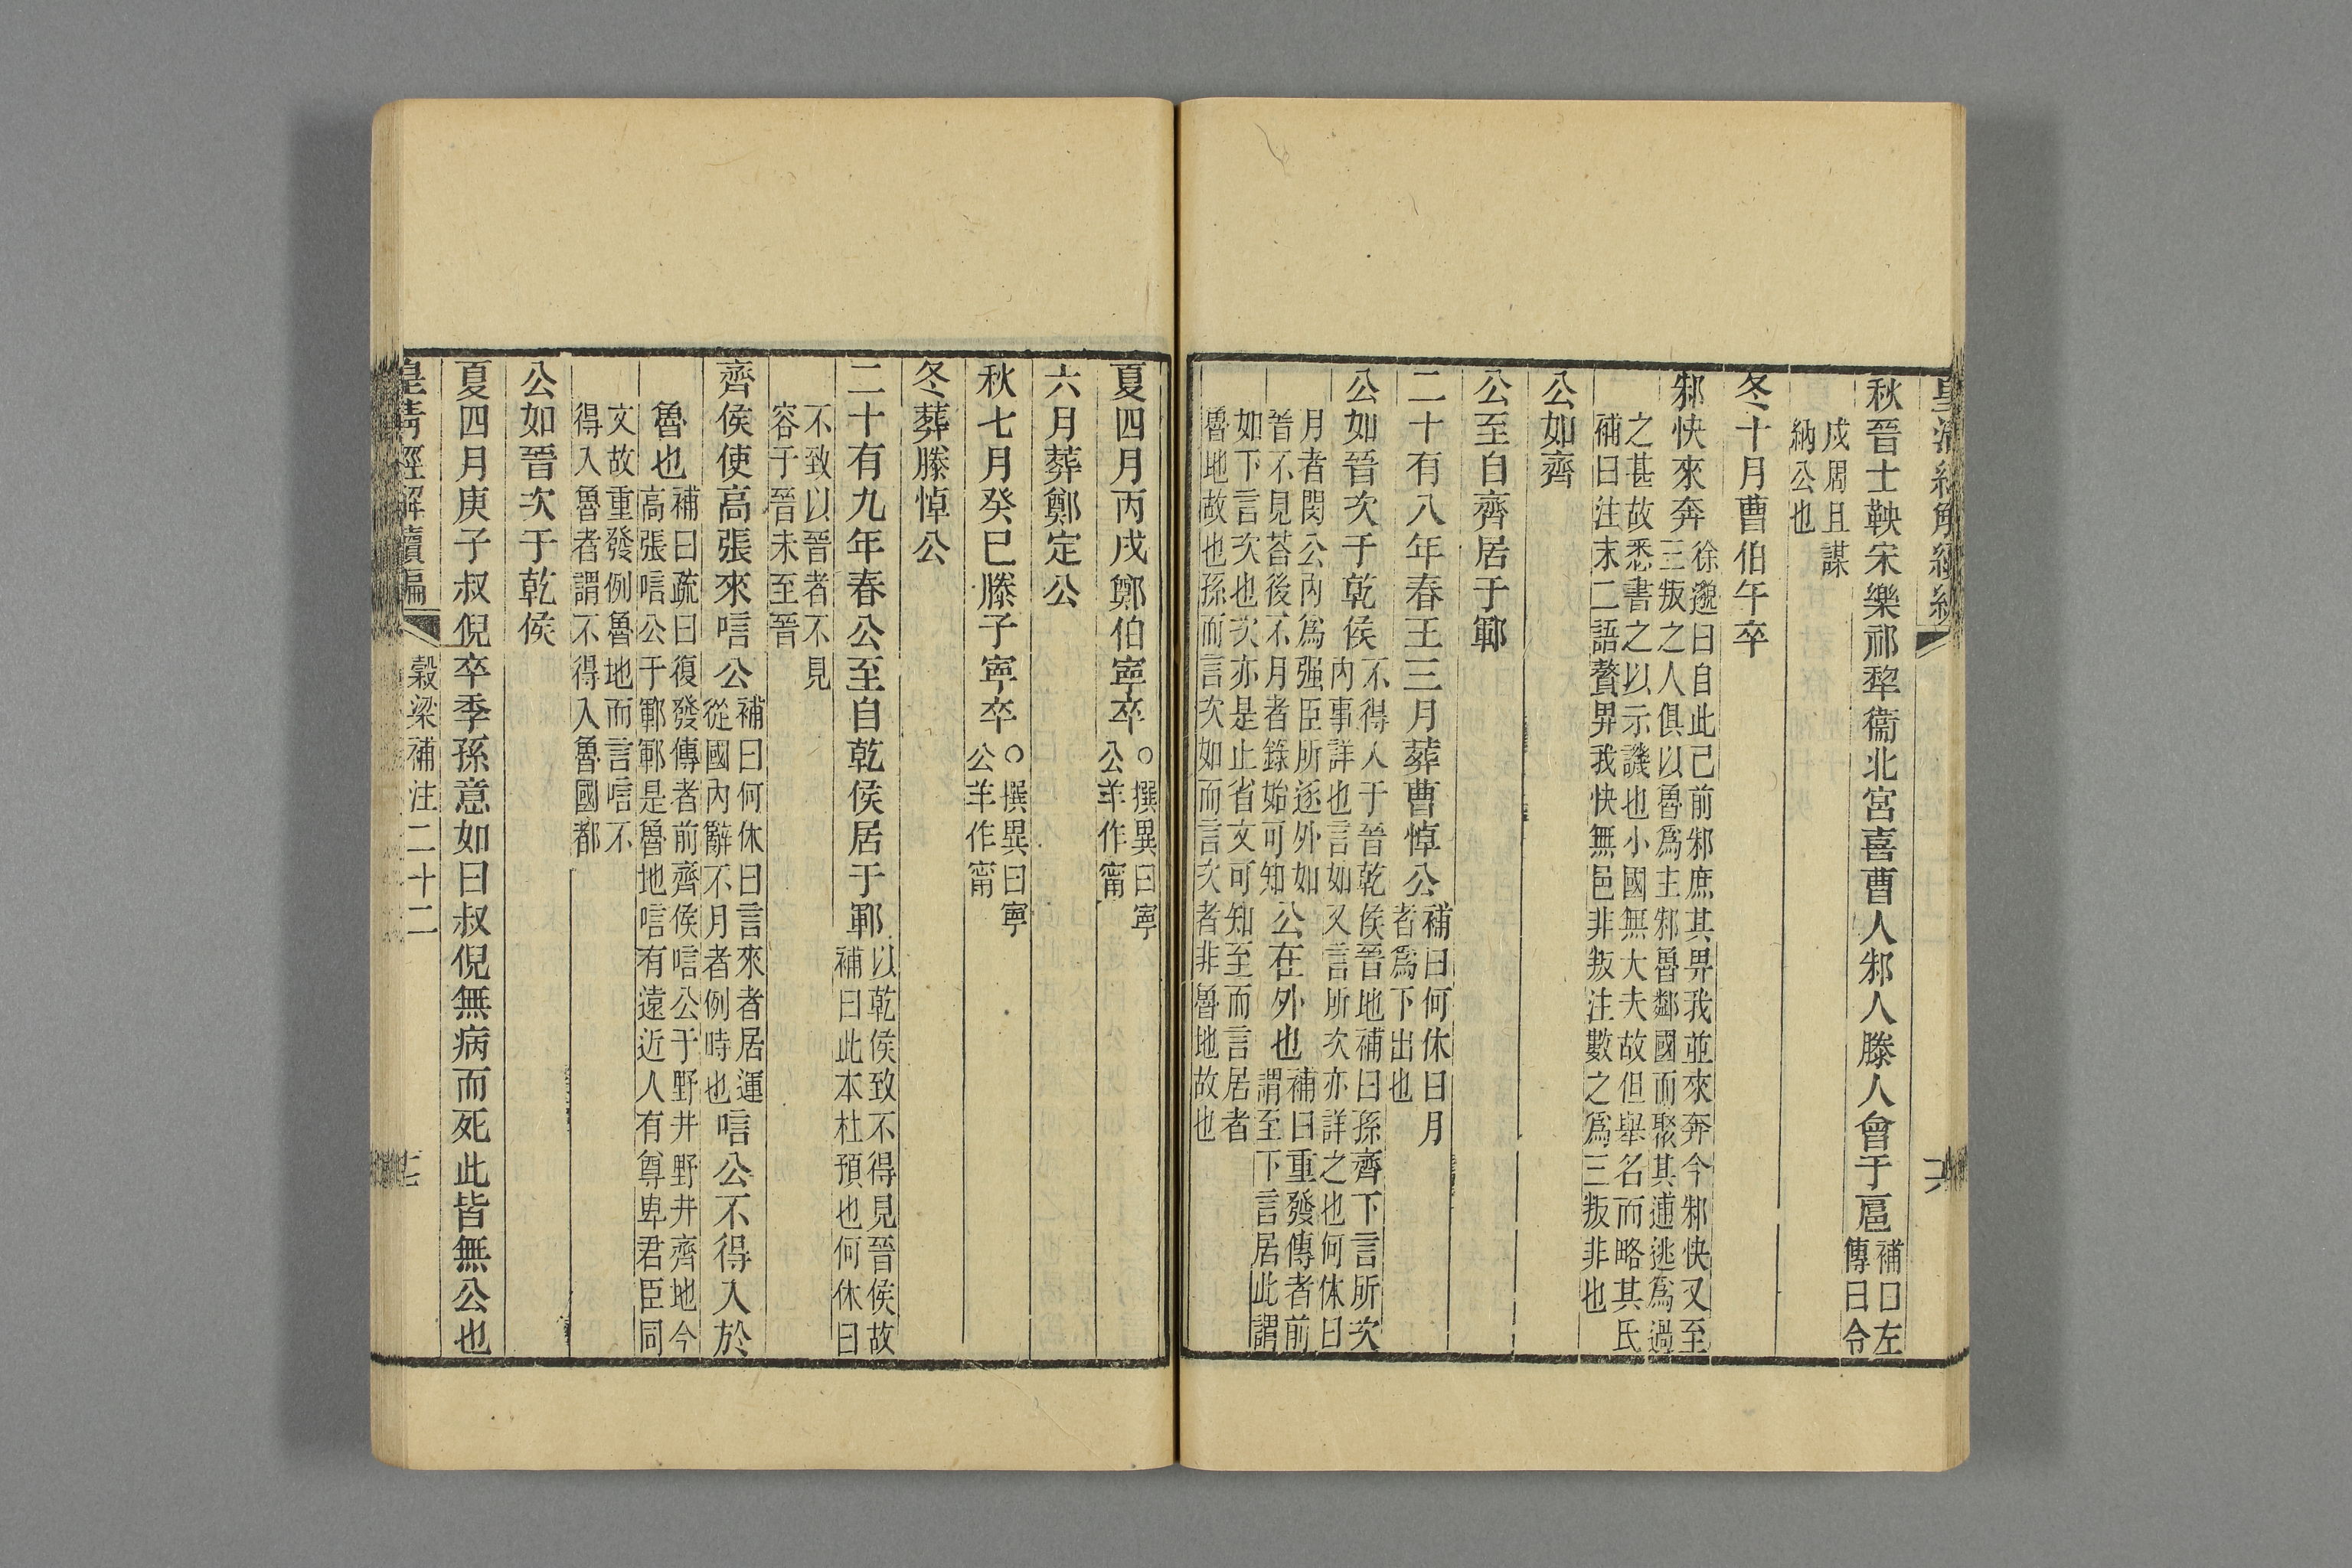 皇清經解續編
六
秋晉士鞅宋樂祁犂衞北宮喜曹人邾人滕人會于扈補曰左傳曰令
戍周且謀納公也
冬十月曹伯午卒
邾快來奔徐邈曰自此已前邾庶其畀我並來奔今邾快又至三叛之人俱以魯爲主邾魯鄰國而聚其逋逃爲過
之甚故悉書之以示譏也小國無大夫故但舉名而略其氏補曰注末二語贅畀我快無邑非叛注數之爲三叛非也
公如齊
公至自齊居于鄆
二十有八年春王三月葬曹悼公補曰何休曰月者爲下出也
公如晉次于乾侯不得入于晉乾侯晉地補曰孫齊下言所次內事詳也言如又言所次亦詳之也何休曰
月者閔公內爲强臣所逐外如晉不見荅後不月者錄始可知公在外也補曰重發傳者前謂至下言居此謂
如下言次也次亦是止省文可知至而言居者魯地故也孫而言次如而言次者非魯地故也
夏四月丙戌鄭伯寧卒○撰異曰寧公羊作甯
六月葬鄭定公
秋七月癸巳滕子寧卒○撰異曰寧公羊作甯
冬葬滕悼公
二十有九年春公至自乾侯居于鄆以乾侯致不得見晉侯故補曰此本杜預也何休曰
不致以晉者不見容于晉未至晉
齊侯使高張來唁公補曰何休曰言來者居運從國內辭不月者例時也唁公不得入於
魯也補曰疏曰復發傳者前齊侯唁公于野井野井齊地今高張唁公于鄆鄆是魯地唁有遠近人有尊卑君臣同
文故重發例魯地而言唁不得入魯者謂不得入魯國都
公如晉次于乾侯
夏四月庚子叔倪卒季孫意如曰叔倪無病而死此皆無公也
皇清經解續編
穀梁補注二十二